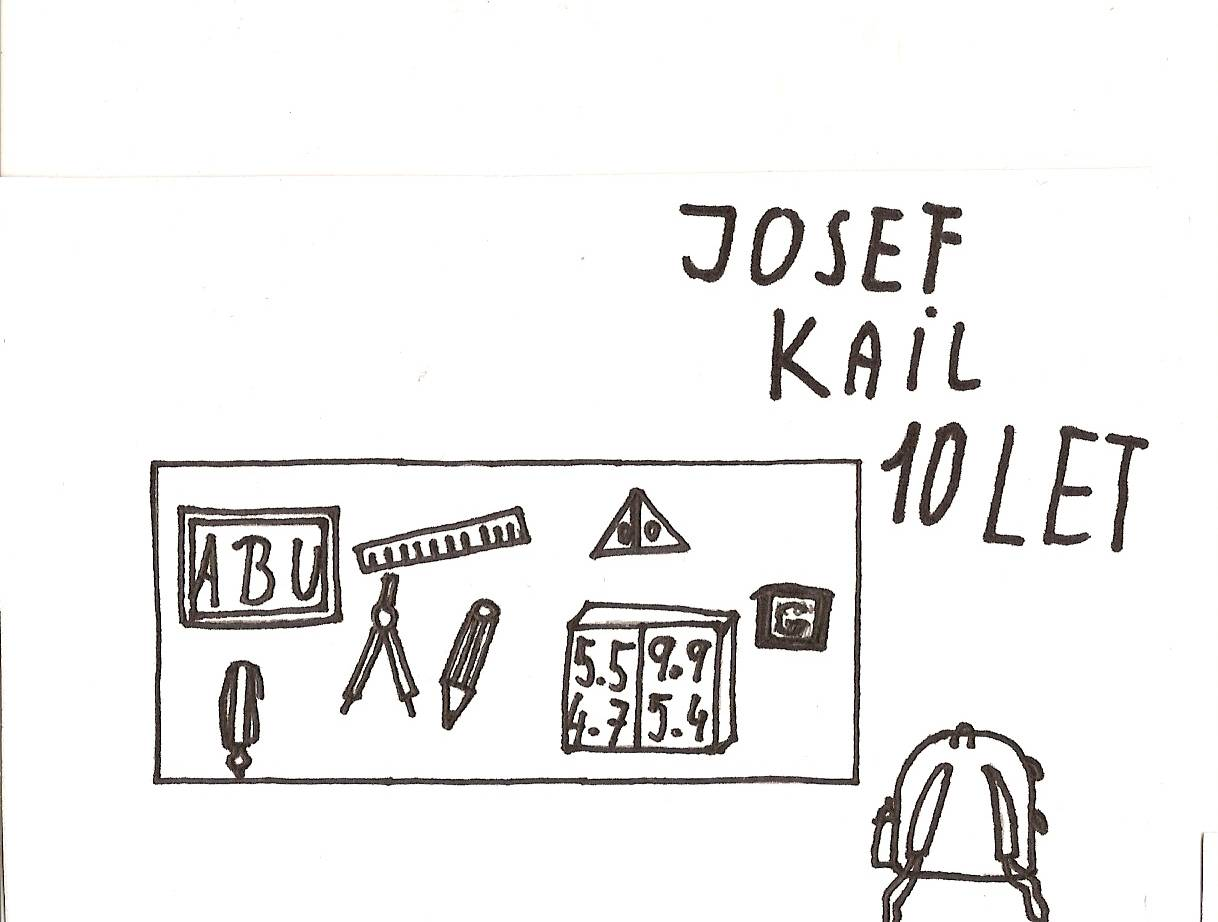 JOSEF
KAIL
10 LET
ABU
5.5 9.9
4.7 5.4
G